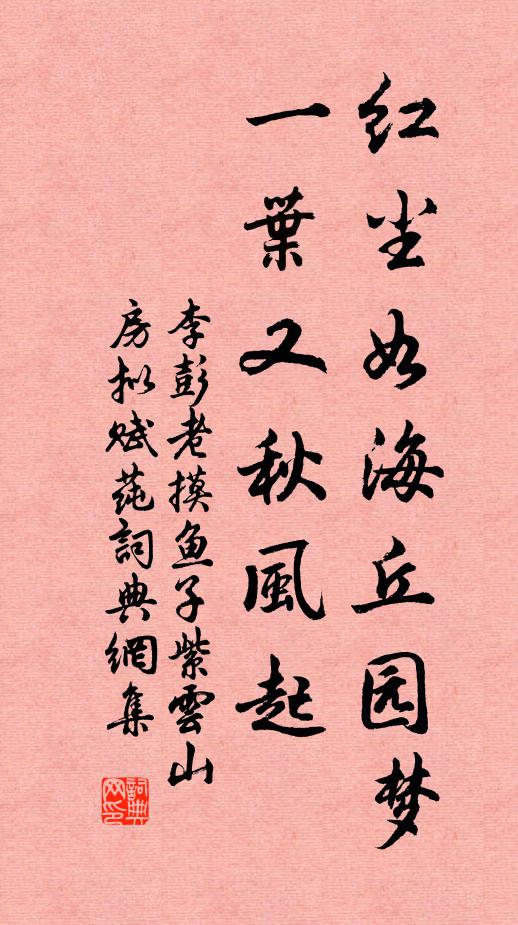 红尘如海丘园梦
一葉又秋風起
李彭老摸鱼子紫雲山
房拟赋莼詞典網集
詞典网印